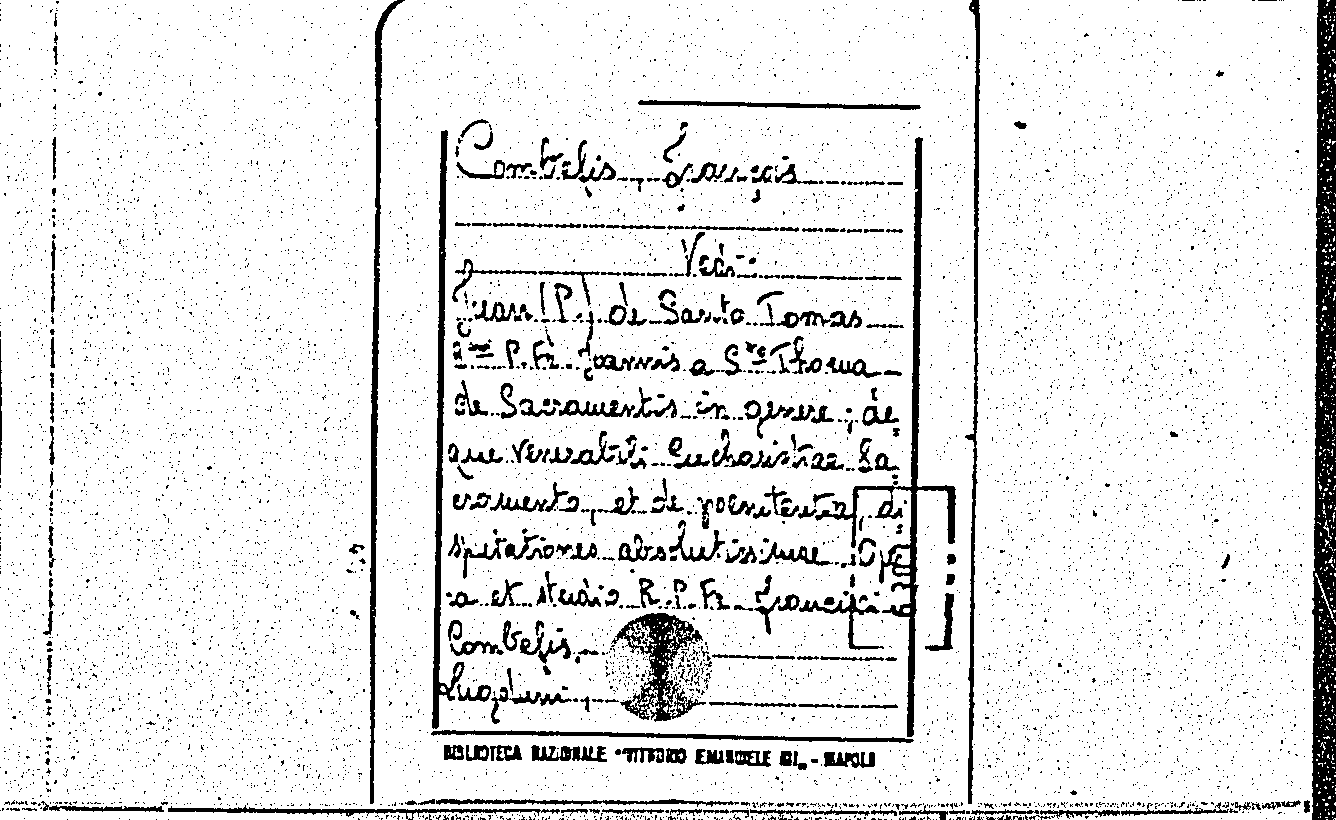 Combefis, François
Vedi:
Juan (P.) de Santo Tomas
P. Fr. Joannis a S.to Thoma
de Sacramentis in genere; de
que venerabili Eucharistiae Sa
cramento, et de poenitentia, di
sputationes absolutissimae. Ope
ra et studio R. P. Fr. Francisci
Combefis.
Lugduni,
BIBLIOTECA NAZIONALE "VITTORIO EMANUELE III" - NAPOLI